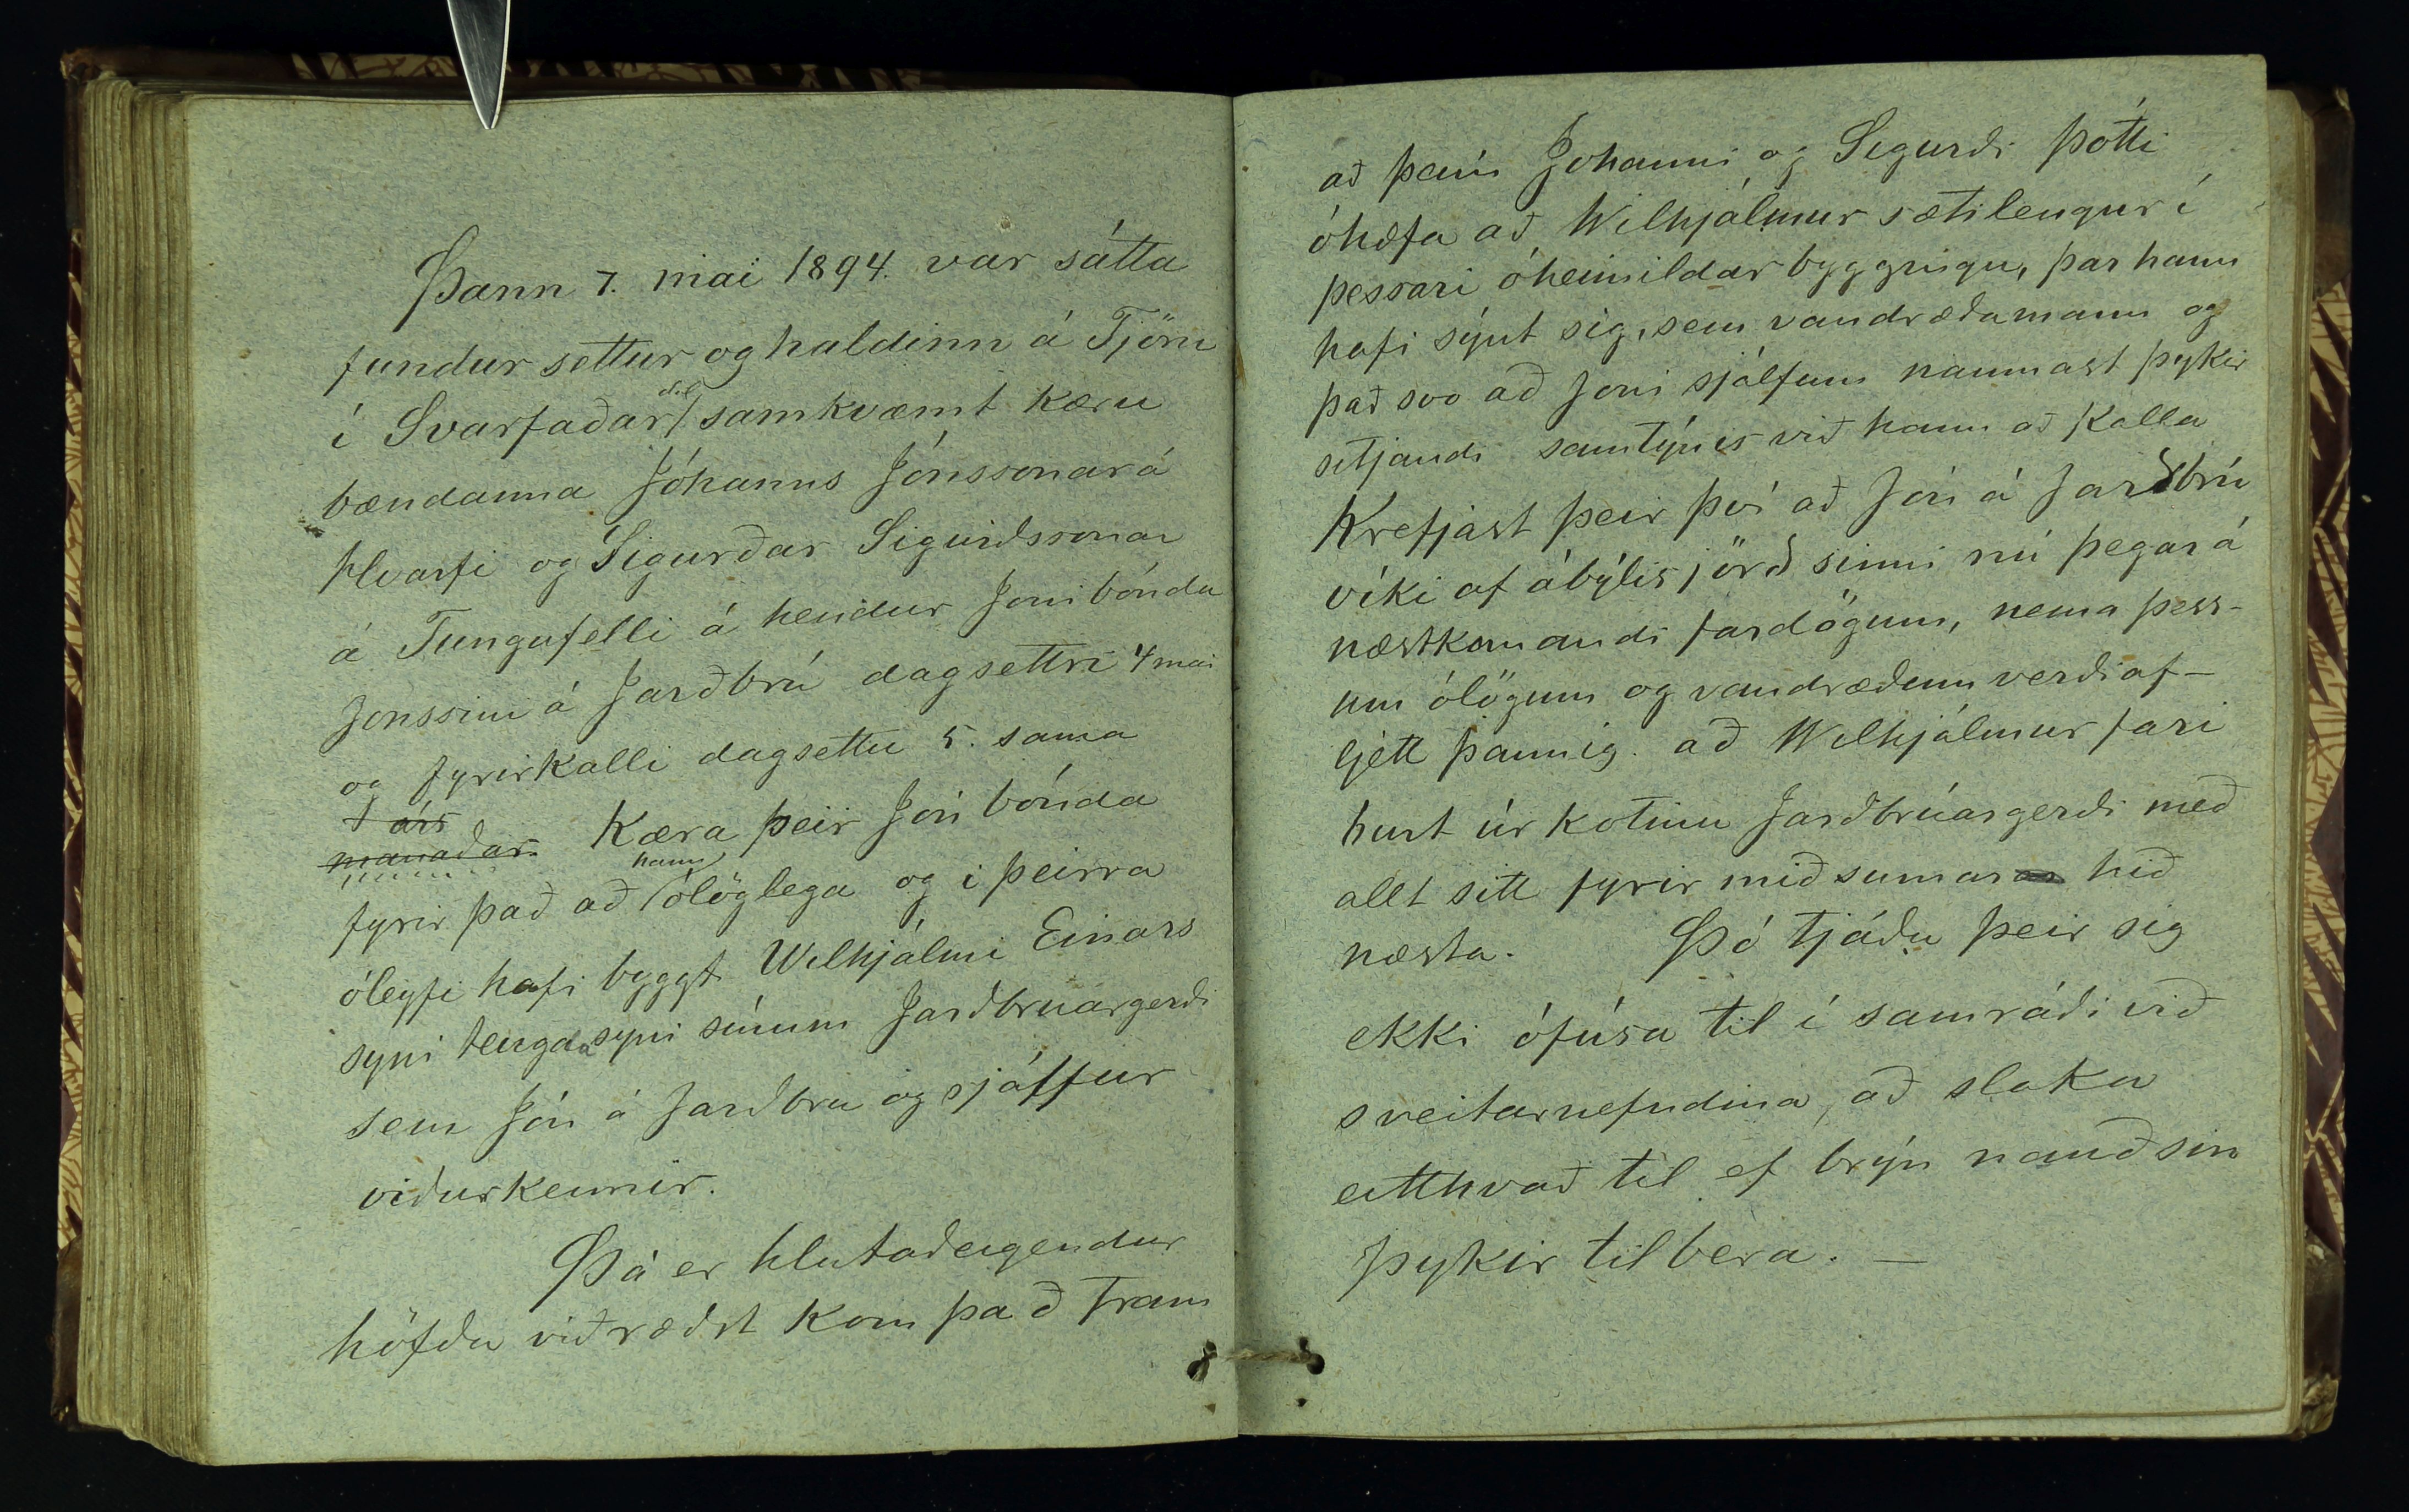 Þann 7. mai 1894. var sátta
fundur settur og haldinn á Tjörn
í Svarfaðardal samkvæmt kæru
bændanna Jóhanns Jónssonar á
Hvarfi og Sigurðar Sigurðssonar
á Tungufelli á hendur Joni bónda
Jonssini á Jarðbrú dagsettri 4 mai
og fyrirkalli dagsettu 5. sama
árs
manaðar. Kæra þeir Jón bónda
fyrir það að hann ólöglega og i þeirra
óleyfi hafi byggt Wilhjálmi Einars
syni tengdasyni sínum Jarðbruargerði
sem Jón á Jarðbru og sjálfur
viðurkennir.
Þá er hlutaðeigendur
höfðu viðræðst kom það fram
að þeim Johanni og Sigurði þótti
óhæfa að Wilhjálmur sæti lengur í
þessari óheimildar byggingu, þar hann
hafi sýnt sig, sem vandræðamann og
það svo að Joni sjálfum naumast þykir
sitjandi samtýnis við hann að kalla
Krefjast þeir því að Jón á Jarðbrú
víki af ábýlisjörð sinni nú þegar á
næstkomandi fardögum, nema þess-
um ólögum og vandræðum verði af-
ljett þannig. að Wilhjálmur fari
burt úr kotinu Jarðbrúargerði með
allt sitt fyrir miðsumar hið
næsta. Þó tjáðu þeir sig
ekki ófúsa til í samráði við
sveitarnefndina, að slaka
eitthvað til ef brýn nauðsin
þykir til bera. —